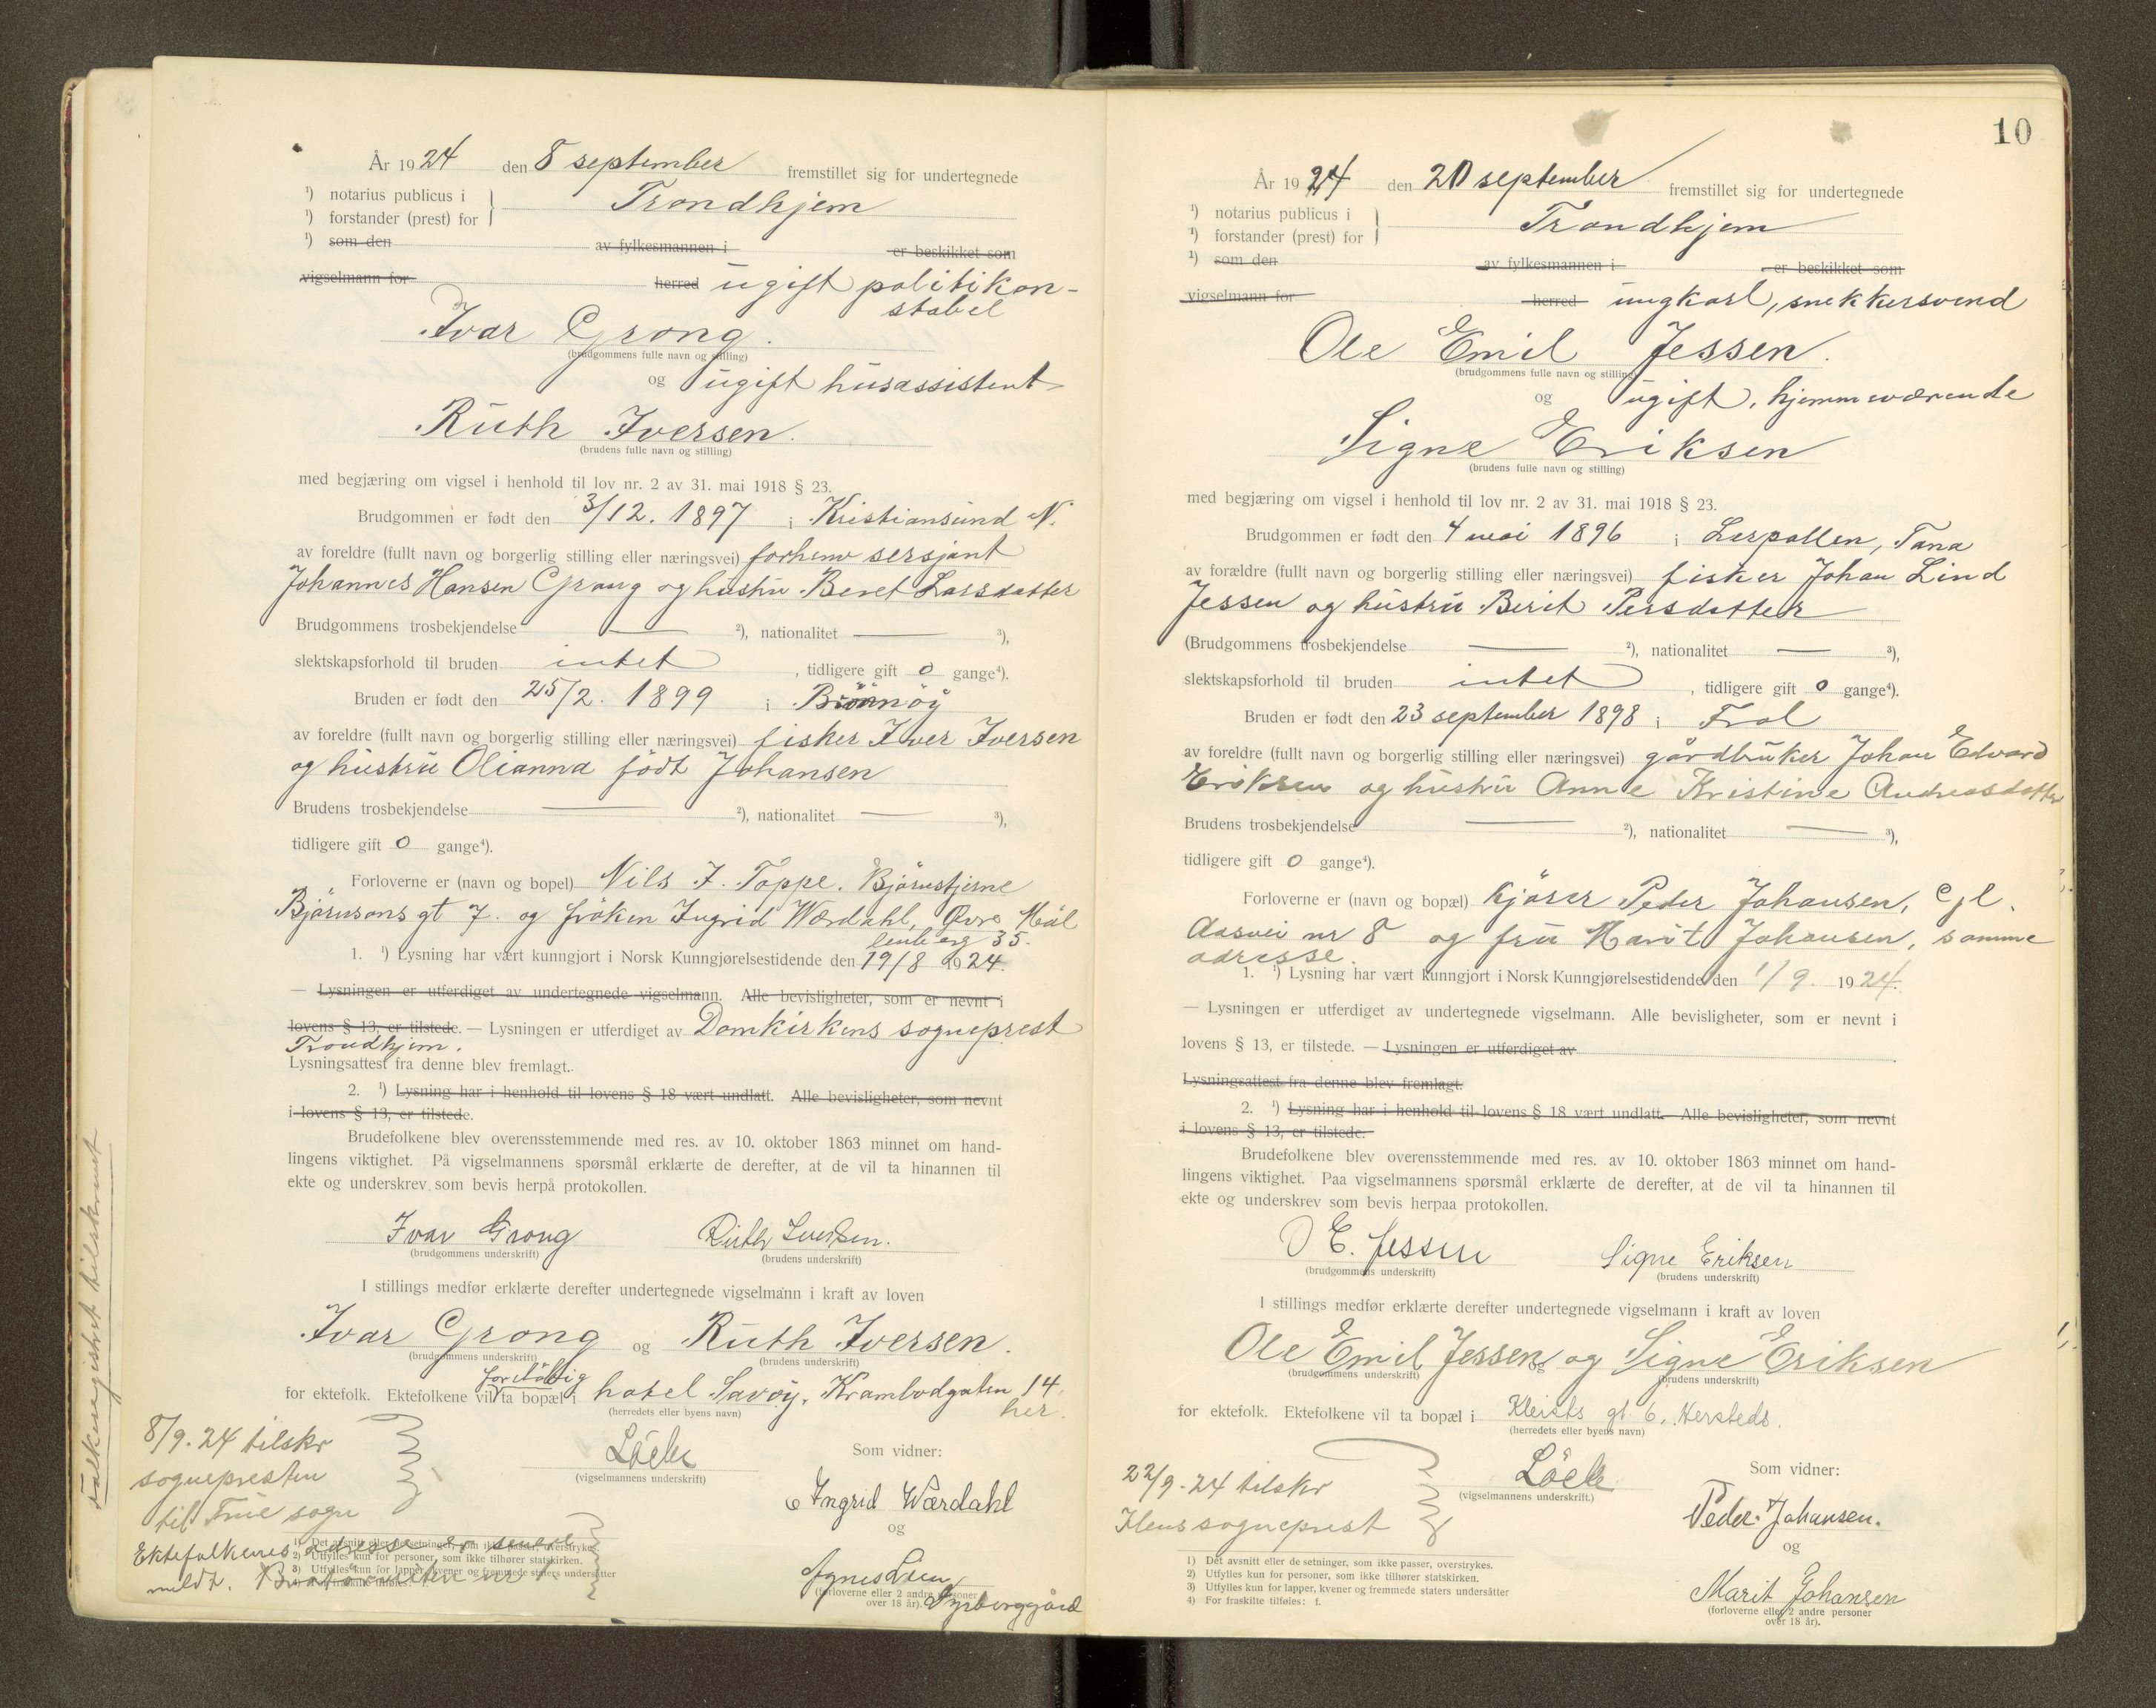 År 1924 den 8 september fremstillet sig for undertegnede
¹) notarius publicus i
¹) forstander (prest) for } Trondhjem
¹) som den av fylkesmannen i er beskikket som
vigselmann for herred ugift politikon-
stabel
Ivar Grong.
(brudgommens fulle navn og stilling)
og ugift husassistent
Ruth Iversen.
(brudens fulle navn og stilling)
med begjæring om vigsel i henhold til lov nr. 2 av 31. mai 1918 § 23.
Brudgommen er født den 3/12. 1897 i Kristiansund N.
av foreldre (fullt navn og borgerlig stilling eller næringsvei) forhenv sersjant
Johannes Hansen Grong og hustru Beret Larsdatter
Brudgommens trosbekjendelse — ²), nationalitet — ³),
slektskapsforhold til bruden intet, tidligere gift 0 gange⁴).
Bruden er født den 25/2. 1899 i Brönnöy
av foreldre (fullt navn og borgerlig stilling eller næringsvei) fisker Iver Iversen
og hustru Olianna födt Johansen
Brudens trosbekjendelse — ²), nationalitet — ³),
tidligere gift 0 gange⁴).
Forloverne er (navn og bopel) Nils J. Toppe. Björnstjerne
Björnsons gt 7. og fröken Ingrid Wærdahl, Øvre Möl
lenberg 35.
1. ¹) Lysning har vært kunngjort i Norsk Kunngjørelsestidende den 19/8 1924.
— Lysningen er utferdiget av undertegnede vigselmann. Alle bevisligheter, som er nevnt i
lovens § 13, er tilstede. — Lysningen er utferdiget av Domkirkens sogneprest
Trondhjem.
Lysningsattest fra denne blev fremlagt.
2. ¹) Lysning har i henhold til lovens § 18 vært undlatt. Alle bevisligheter, som nevnt
i lovens § 13, er tilstede.
Brudefolkene blev overensstemmende med res. av 10. oktober 1863 minnet om hand-
lingens viktighet. På vigselmannens spørsmål erklærte de derefter, at de vil ta hinannen til
ekte og underskrev som bevis herpå protokollen.
Ivar Grong Ruth Iversen.
(brudgommens underskrift) (brudens underskrift)
I stillings medfør erklærte derefter undertegnede vigselmann i kraft av loven
Ivar Grong og Ruth Iversen.
(brudgommens underskrift) (brudens underskrift)
foreløbig
for ektefolk. Ektefolkene vil ta bopæl i hotel Savoy, Krambodgaten 14,
her.
(herredets eller byens navn)
8/9.24 tilskr
sognepresten
til Frue sogn
Ektefolkenes adresse er senere
meldt.
Folkeregistret tilskrevet
(vigselmannens underskrift)
Som vidner:
Ingrid Wærdahl
og
Agnes Lien
(forloverne eller 2 andre personer
over 18 år).
1) Det avsnitt eller de setninger, som ikke passer, overstrykes.
2) Utfylles kun for personer, som ikke tilhører statskirken.
3) Utfylles kun for lapper, kvener og fremmede staters undersåtter
10
År 1924 den 20 september fremstillet sig for undertegnede
¹) notarius publicus i
¹) forstander (prest) for } Trondhjem
¹) som den av fylkesmannen i er beskikket som
vigselmann for herred ungkarl, snekkersvend
Ole Emil Jessen.
(brudgommens fulle navn og stilling)
og ugift, hjemmeværende
Signe Eriksen
(brudens fulle navn og stilling)
med begjæring om vigsel i henhold til lov nr. 2 av 31. mai 1918 § 23.
Brudgommen er født den 4 mai 1896 i Lerpollen, Tana
av forældre (fullt navn og borgerlig stilling eller næringsvei) fisker Johan Lind
Jessen og hustru Berit Persdatter
(Brudgommens trosbekjendelse — ²), nationalitet — ³),
slektskapsforhold til bruden intet, tidligere gift 0 gange⁴).
Bruden er født den 23 september 1898 i Frol
av foreldre (fullt navn og borgerlig stilling eller næringsvei) gårdbruker Johan Edvard
Eriksen og hustru Anne Kristine Andreasdatter
Brudens trosbekjendelse — ²), nationalitet — ³),
tidligere gift 0 gange⁴).
Forloverne er (navn og bopæl) kjörer Peder Johansen, Gl.
Aasvei nr 8 og fru Marit Johansen, samme
adresse.
1. ¹) Lysning har vært kunngjort i Norsk Kunngjørelsestidende den 1/9. 1924.
— Lysningen er utferdiget av undertegnede vigselmann. Alle bevisligheter, som er nevnt i
lovens § 13, er tilstede. — Lysningen er utferdiget av
Lysningsattest fra denne blev fremlagt.
2. ¹) Lysning har i henhold til lovens § 18 vært undlatt. Alle bevisligheter, som nevnt
i lovens § 13, er tilstede.
Brudefolkene blev overensstemmende med res. av 10. oktober 1863 minnet om hand-
lingens viktighet. Paa vigselmannens spørsmål erklærte de derefter, at de vil ta hinannen til
ekte og underskrev som bevis herpaa protokollen.
O E. Jessen Signe Eriksen
(brudgommens underskrift) (brudens underskrift)
I stillings medfør erklærte derefter undertegnede vigselmann i kraft av loven
Ole Emil Jessen og Signe Eriksen
(brudgommens underskrift) (brudens underskrift)
for ektefolk. Ektefolkene vil ta bopæl i Kleists gt 6, hersteds.
(herredets eller byens navn)
22/9-24 tilskr
Ilens sogneprest
(vigselmannens underskrift.)
Som vidner:
Peder Johansen.
og
Marit Johansen
(forloverne eller 2 andre personer
over 18 år).
1) Det avsnitt eller de setninger, som ikke passer, overstrykes.
2) Utfylles kun for personer, som ikke tilhører statskirken.
3) Utfylles kun for lapper, kvener og fremmede staters undersåtter
4) For fraskilte tilføies: f.